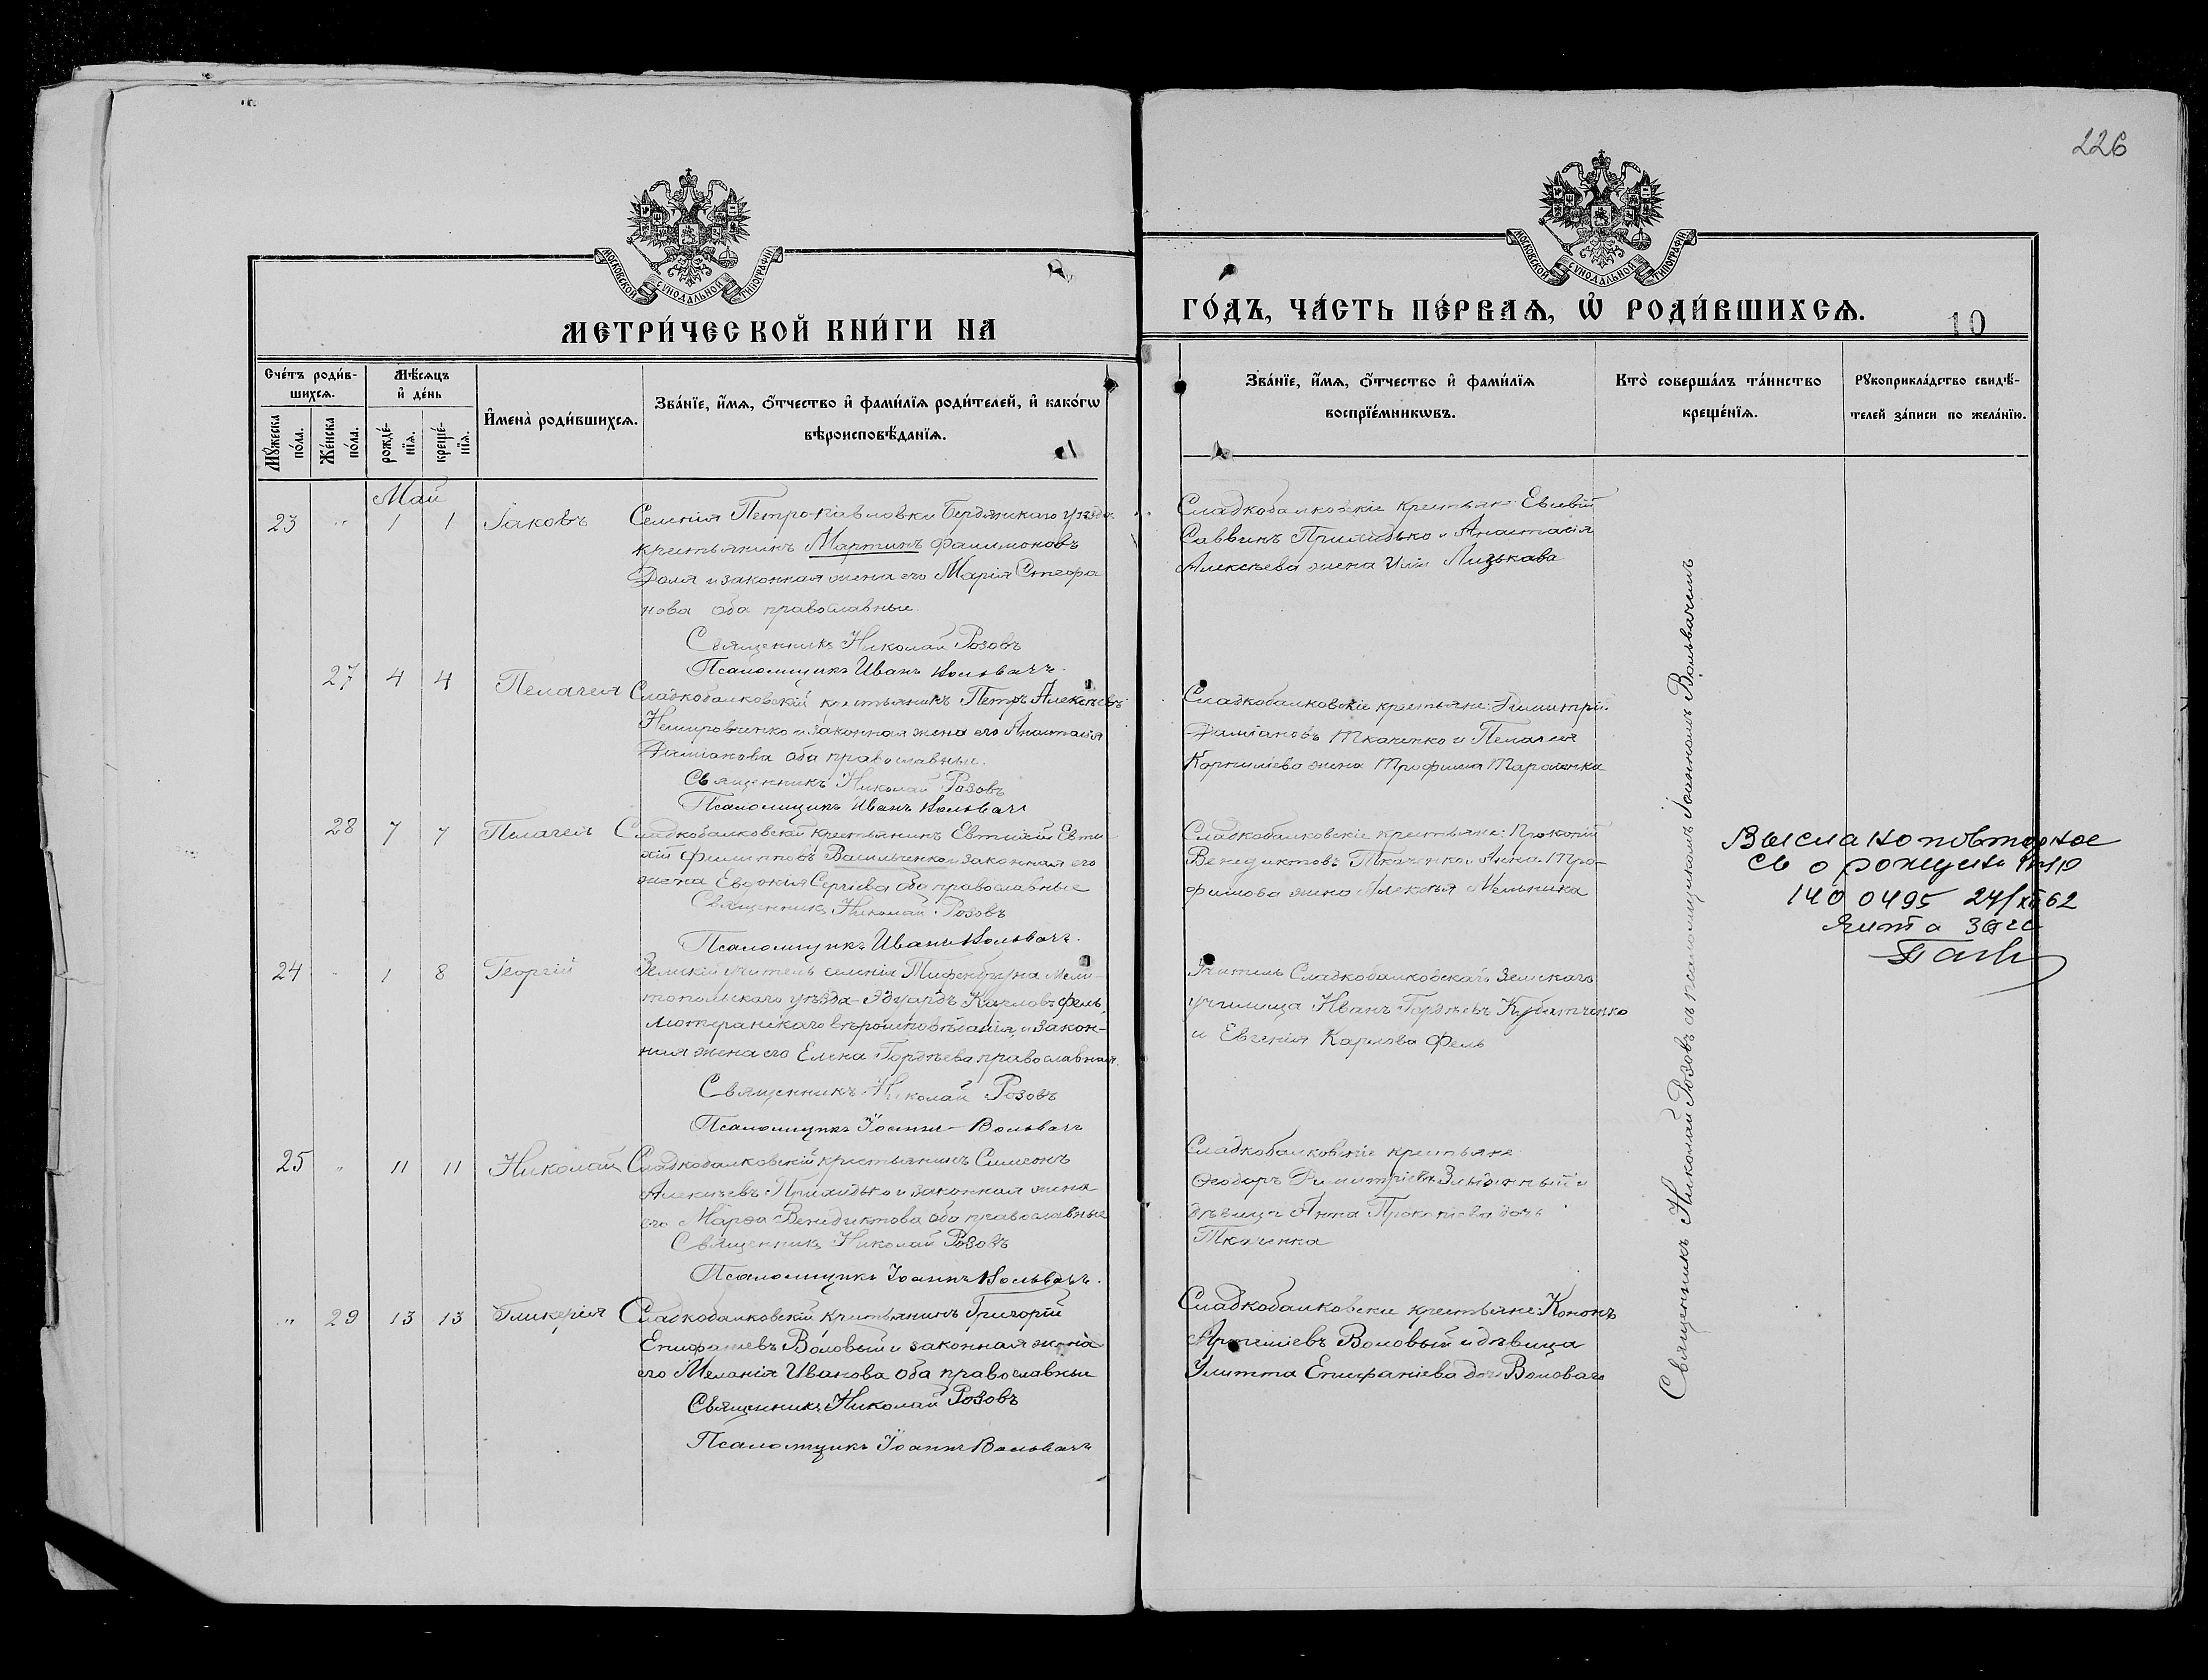 226
МОСКОВСКОЙ СѴНОДАЛЬНОЙ ТИПОГРАФІИ
МОСКОВСКОЙ СѴНОДАЛЬНОЙ ТИПОГРАФІИ
МЕТРИ́ЧЕСКОЙ КНИ́ГИ НА
ГО́ДЪ, ЧА́СТЬ ПЕ́РВАЯ, Ѡ҆ РОДИ́ВШИХСЯ.
10
Сче́тъ роди́вшихся.
Мꙋ́жеска по́ла.
Же́нска по́ла.
Мѣ́сяцъ и҆ де́нь
рожде́нїя.
креще́нїя.
И҆мена̀ роди́вшихся.
Зва́нїе, и҆́мя, ѻ҆́тчество и҆ фами́лїя роди́телей, и҆ како́гѡ
вѣроисповѣ́данїя.
Зва́нїе, и҆́мя, ѻ҆́тчество и҆ фами́лїя
воспрїе́мникѡвъ.
Кто̀ соверша́лъ та́инство
креще́нїя.
Рꙋкоприкла́дство свидѣ́-
телей за́писи по жела́нїю.
Май
23 " 1 1 Іаковъ
Селенія Петро-Павловки Бердянскаго уѣзда
крестьянинъ Мартинъ Филимоновъ
Доля и законная жена его Марія Стефа
нова оба православные.
Священникъ Николай Розовъ
Псаломщикъ Иванъ Вольвачъ.
Сладкобалковскіе крестьяне Евсевій
Саввинъ и Анастасія
Алексѣева жена
27 4 4 Пелагея
Сладкобалковскій крестьянинъ Петръ Алексѣевъ
Немировченко и законная жена его Анастасія
Даміанова оба православные.
Священникъ Николай Розовъ
Псаломщикъ Иванъ Вольвачъ
Сладкобалковскіе крестьяне: Димитрій
Даміановъ Ткаченко и Пелагея
Корнилева жена Трофима Тараненка
28 7 7 Пелагея
Сладкобалковскій крестьянинъ Евтихій Евти
хій Филипповъ Васильченко и законная его
жена Евдокія Сергіева оба православные
Священникъ Николай Розовъ
Псаломщикъ Иванъ Вольвачъ.
Сладкобалковскіе крестьяне: Прокопій
Венедиктовъ Ткаченко и Анна Тро-
фимова жена Алексѣя Мельника
24 " 1 8 Георгій
Земскій учитель селенія Тифенбруна Мели-
топольскаго уѣзда Эдуардъ Карловъ Фель,
лютеранскаго вѣроисповѣданія, и закон-
ная жена его Елена Гордѣева православная.
Священникъ Николай Розовъ
Псаломщикъ Іоаннъ Вольвачъ
Учитель Сладкобалковскаго Земскаго
училища Иванъ Гордѣевъ
и Евгенія Карлова Фель
25 " 11 11 Николай
Сладкобалковскій крестьянинъ Симеонъ
Алексѣевъ и законная жена
его Марфа Венедиктова оба православные
Священникъ Николай Розовъ
Псаломщикъ Іоаннъ Вольвачъ.
Сладкобалковскіе крестьяне
Ѳеодоръ Димитріевъ и
дѣвица Анна Прокопіева дочь
Ткаченка
" 29 13 13 Гликерія
Сладкобалковскій крестьянинъ Григорій
Епифаніевъ Воловый и законная жена
его Меланія Иванова оба православные
Священникъ Николай Розовъ
Псаломщикъ Іоаннъ Вольвачъ
Сладкобалковскіе крестьяне: Кононъ
Воловый и дѣвица
Улитта Епифаніева дочь Воловаго
Священникъ Николай Розовъ съ псаломщикомъ Іоанномъ Вольвачемъ
Выслано повторное
св о рожден
140 0495 24/XII 62
Ялта Загс